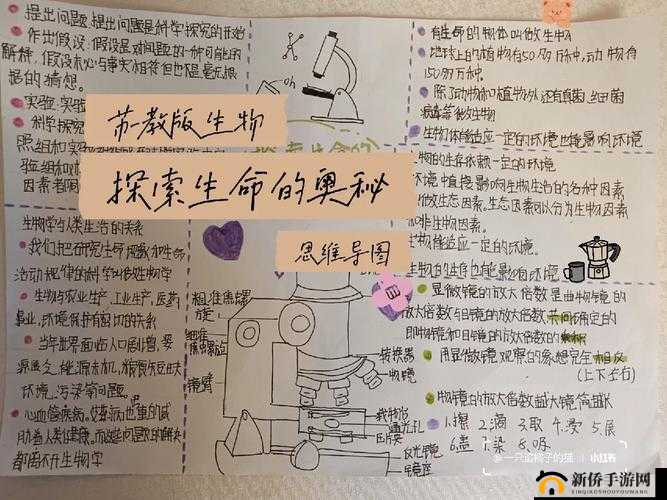 提出问题：提出问题是科学探究的开始
作出假设：假设是对问题的一种可能的
解释，假设未必与事实相符但也是毫无根
据的猜想。
实验：实验
科学探究
照组和实
验组和
因素老周
苏教版生物
探索生命的奥秘
思维导图
生物学与人类生活的关系
我们把研究生命现象和生命
活动规律的科学叫做生物学
生物与农业生产、工业生产、医药
事业、环境保护有密切的关系
当今世界面临人口剧增、资
环境污染等问题。
心血管疾病、艾滋病也重的威
胁着人类健康，而这些问题的解决
都离不开生物学
有生命的物体叫做生物
地球上的植物有50多万种，动物有
150多万种。
除了动物和植物外还有真菌、细菌
病毒等微生物
生物体能适应一定的环境也能影响环境
物的生存依赖一定的环境
环境中直接影响生物生活的各种因素
做生态因素。生态因素可以分为生物因素
和非生物因素。
生物能适应一定的环境。
生物的生存也能影响环境
显微镜的放大倍数是由物镜的
放大倍数与目镜的放大倍数共同确定的
即物镜和目镜的放大倍数的乘积
用显微镜观察的象想完全相反
(上下左右)
物镜的放大倍数越大镜筒越长
1.擦 2.滴 3.取 4.浸 5.展
6.盖 7.染 8.吸
粗准焦螺
旋
细准
焦螺旋
镜臂
转换器
物镜
载物台
通光孔
压片夹
反光镜
镜座
小红书
新侨手游网
XINQIAOSHOUYOUWANG